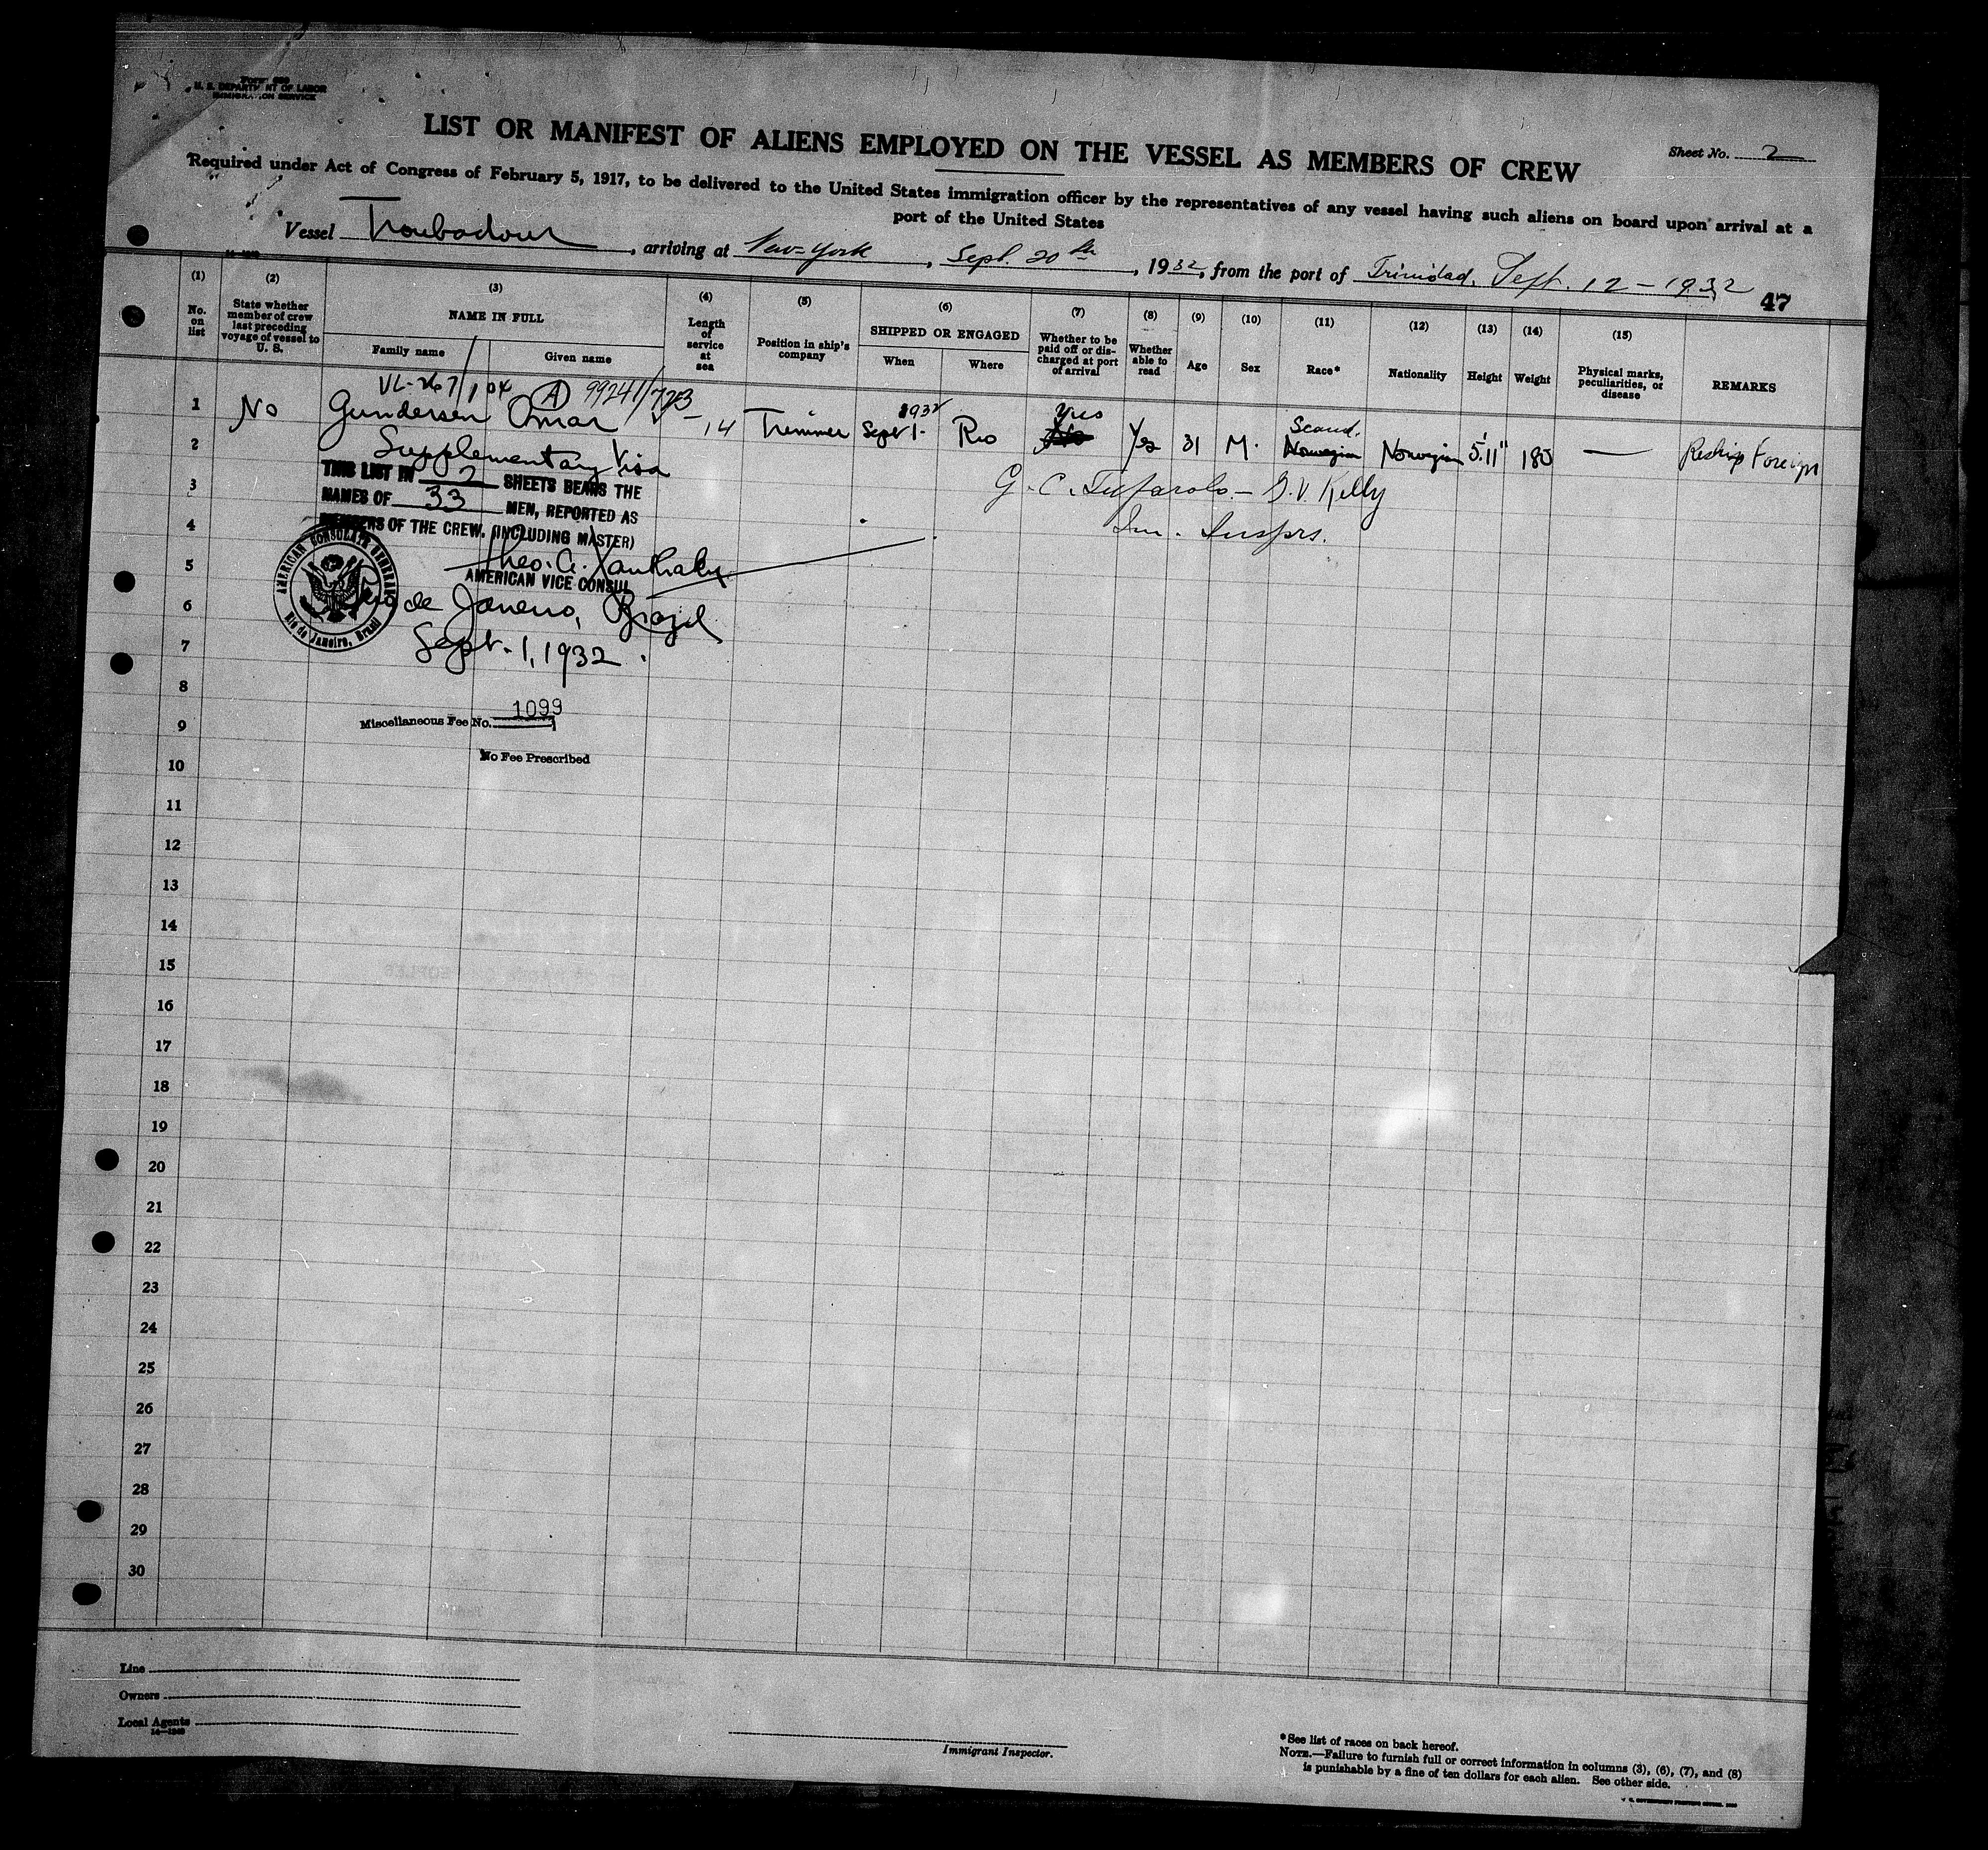 Form 689
U. S. DEPARTMENT OF LABOR
IMMIGRATION SERVICE
LIST OR MANIFEST OF ALIENS EMPLOYED ON THE VESSEL AS MEMBERS OF CREW
Sheet No. 2
Required under Act of Congress of February 5, 1917, to be delivered to the United States immigration officer by the representatives of any vessel having such aliens on board upon arrival at a
port of the United States
Vessel Troubadour, arriving at New-York, Sept. 20th, 1932, from the port of Trinidad, Sept. 12-1932
47
(1) (2) (3) (4) (5) (6) (7) (8) (9) (10) (11) (12) (13) (14) (15)
No. on list
State whether member of crew last preceding voyage of vessel to U. S.
NAME IN FULL
Family name
Given name
Length of service at sea
Position in ship's company
SHIPPED OR ENGAGED
When
Where
Whether to be paid off or discharged at port of arrival
Whether able to read
Age
Sex
Race*
Nationality
Height
Weight
Physical marks, peculiarities, or disease
REMARKS
VL-267/104 A 99241/723
1932 Yes Scand.
1 No Gundersen Omar 14 Trimmer Sept 1- Rio No Yes 31 M. Norwegian Norwegian 5'11" 185 — Reship Foreign
2 Supplementary Visa
THIS LIST IN 2 SHEETS BEARS THE
3 NAMES OF 33 MEN, REPORTED AS
G. C. - G. V. Kelly
4 MEMBERS OF THE CREW. (INCLUDING MASTER)
Im. Insprs.
5 Theo. C.
AMERICAN VICE CONSUL
6 Rio de Janeiro, Brazil
7 Sept. 1, 1932.
AMERICAN CONSULATE GENERAL
Rio de Janeiro, Brazil
8
Miscellaneous Fee No. 1099
9
No Fee Prescribed
10
11
12
13
14
15
16
17
18
19
20
21
22
23
24
25
26
27
28
29
30
Line
Owners
Local Agents
14—1240
Immigrant Inspector.
*See list of races on back hereof.
NOTE.—Failure to furnish full or correct information in columns (3), (6), (7), and (8)
is punishable by a fine of ten dollars for each alien. See other side.